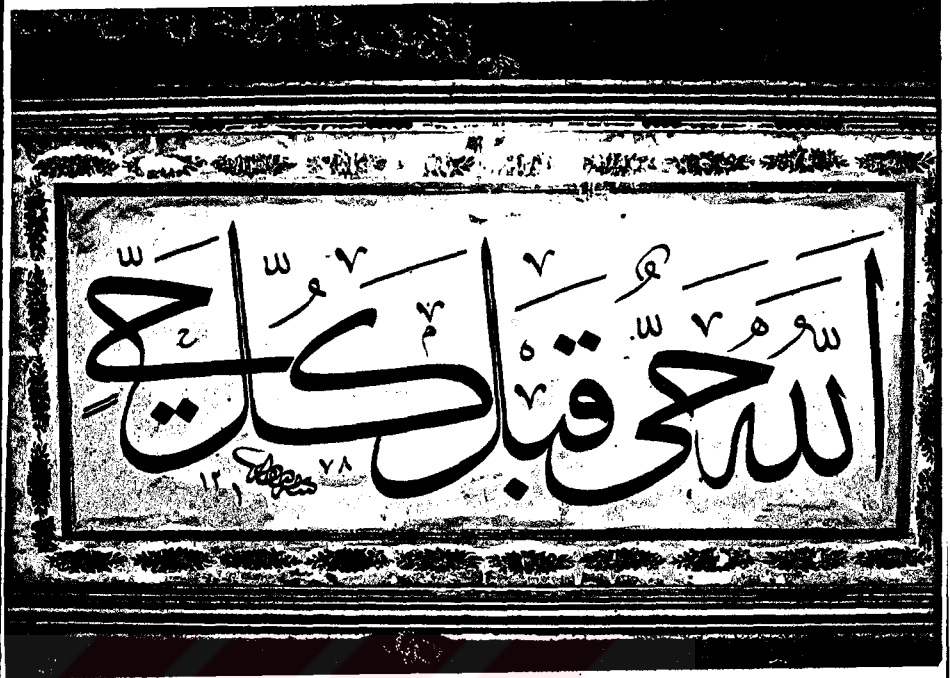 الله حي قبل كل حي
١٢٧٨